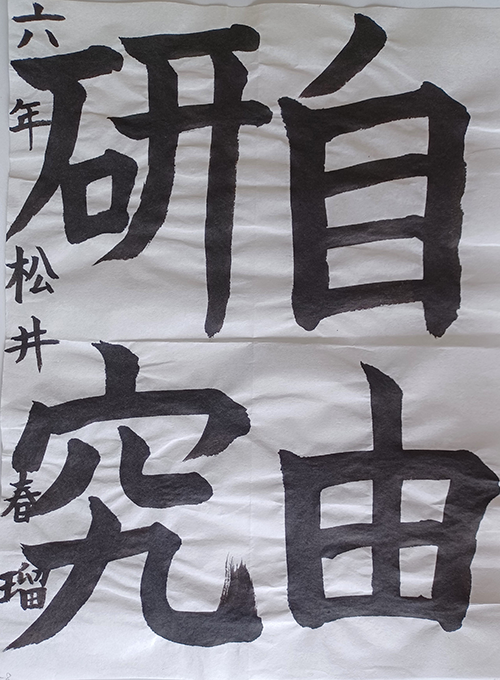 自由
研究
六年 松井 春瑠